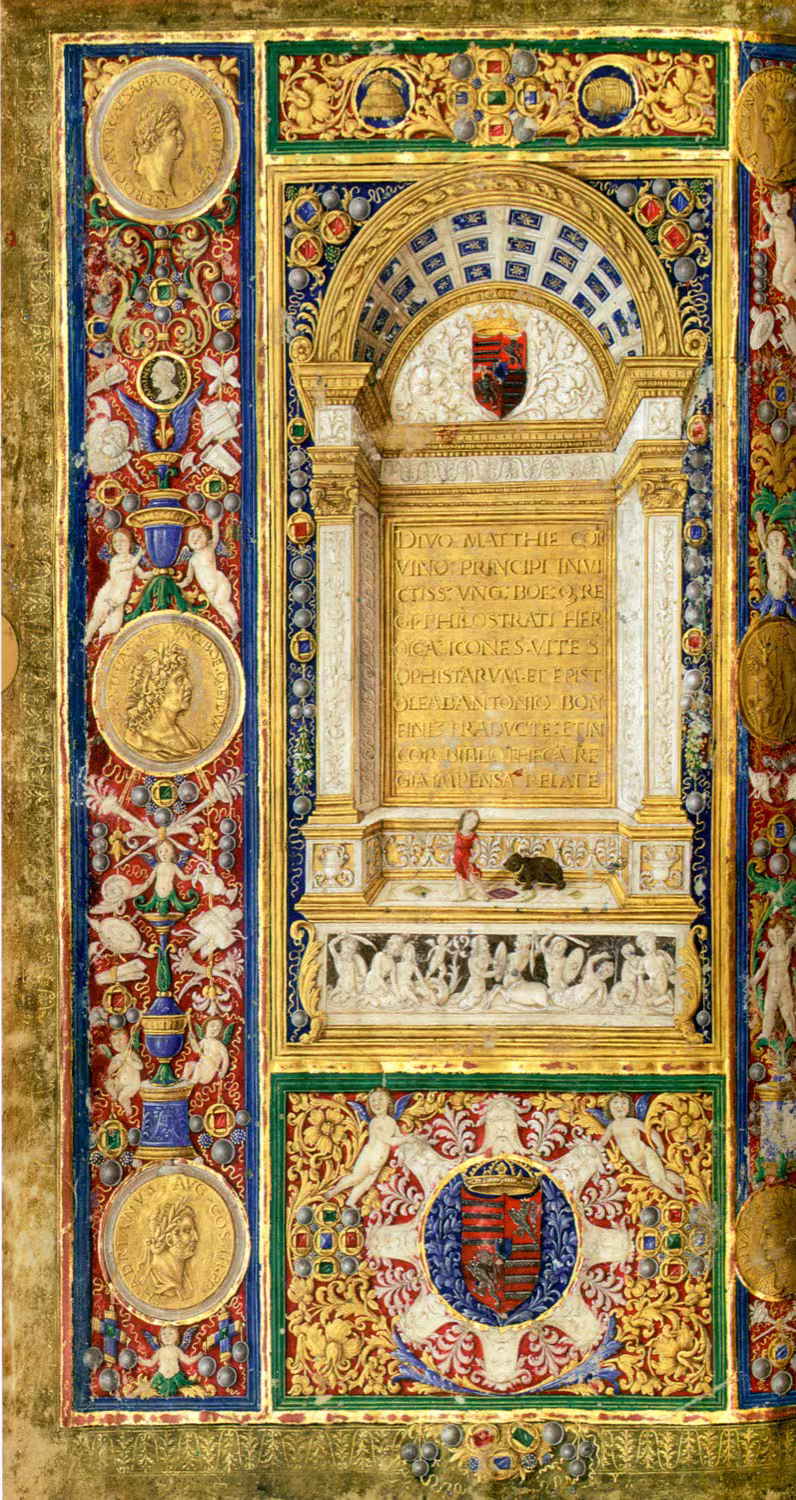 NERO CLAVD CAESAR AVG GER P M TR P IMP P P
DIVO MATTHIE COR
VINO: PRINCIPI INVI
CTISS: VNG: BOE: Q, RE
GI: PHILOSTRATI HER
OICA: ICONES: VITE S
OPHISTARVM: ET EPIST
OLE AB ANTONIO BON
FINE: TRADVCTE: ET IN
COR: BIBLIOTHECA RE
GIA IMPENSA RELATE
HADRIANVS AVG COS III P P